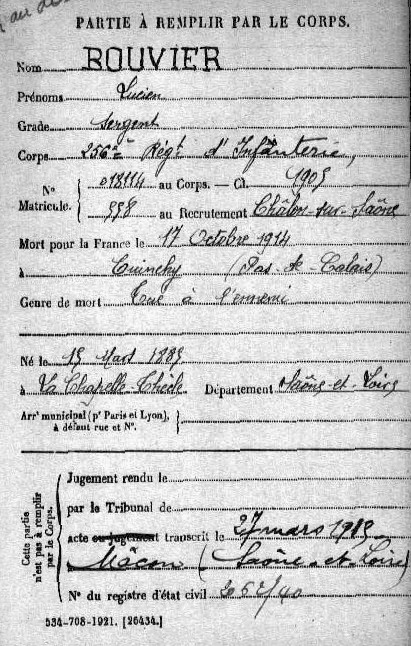 au
PARTIE À REMPLIR PAR LE CORPS.
Nom BOUVIER
Prénoms Lucien
Grade Sergent
Corps 256me Régt d'Infanterie,
N° Matricule. 018114 au Corps. — Cl. 1905
998 au Recrutement Châlon-sur-Saône
Mort pour la France le 17 Octobre 1914
à Cuinchy (Pas-de-Calais)
Genre de mort Tué à l'ennemi
Né le 15 Mars 1885
à La Chapelle-Thècle Département Saône-et-Loire
Arrt municipal (pr Paris et Lyon),
à défaut rue et N°.
Cette partie n'est pas à remplir par le Corps.
Jugement rendu le
par le Tribunal de
acte ou jugement transcrit le 27 mars 1919
Mâcon (Saône-et-Loire)
N° du registre d'état civil
534-708-1921. [26434.]